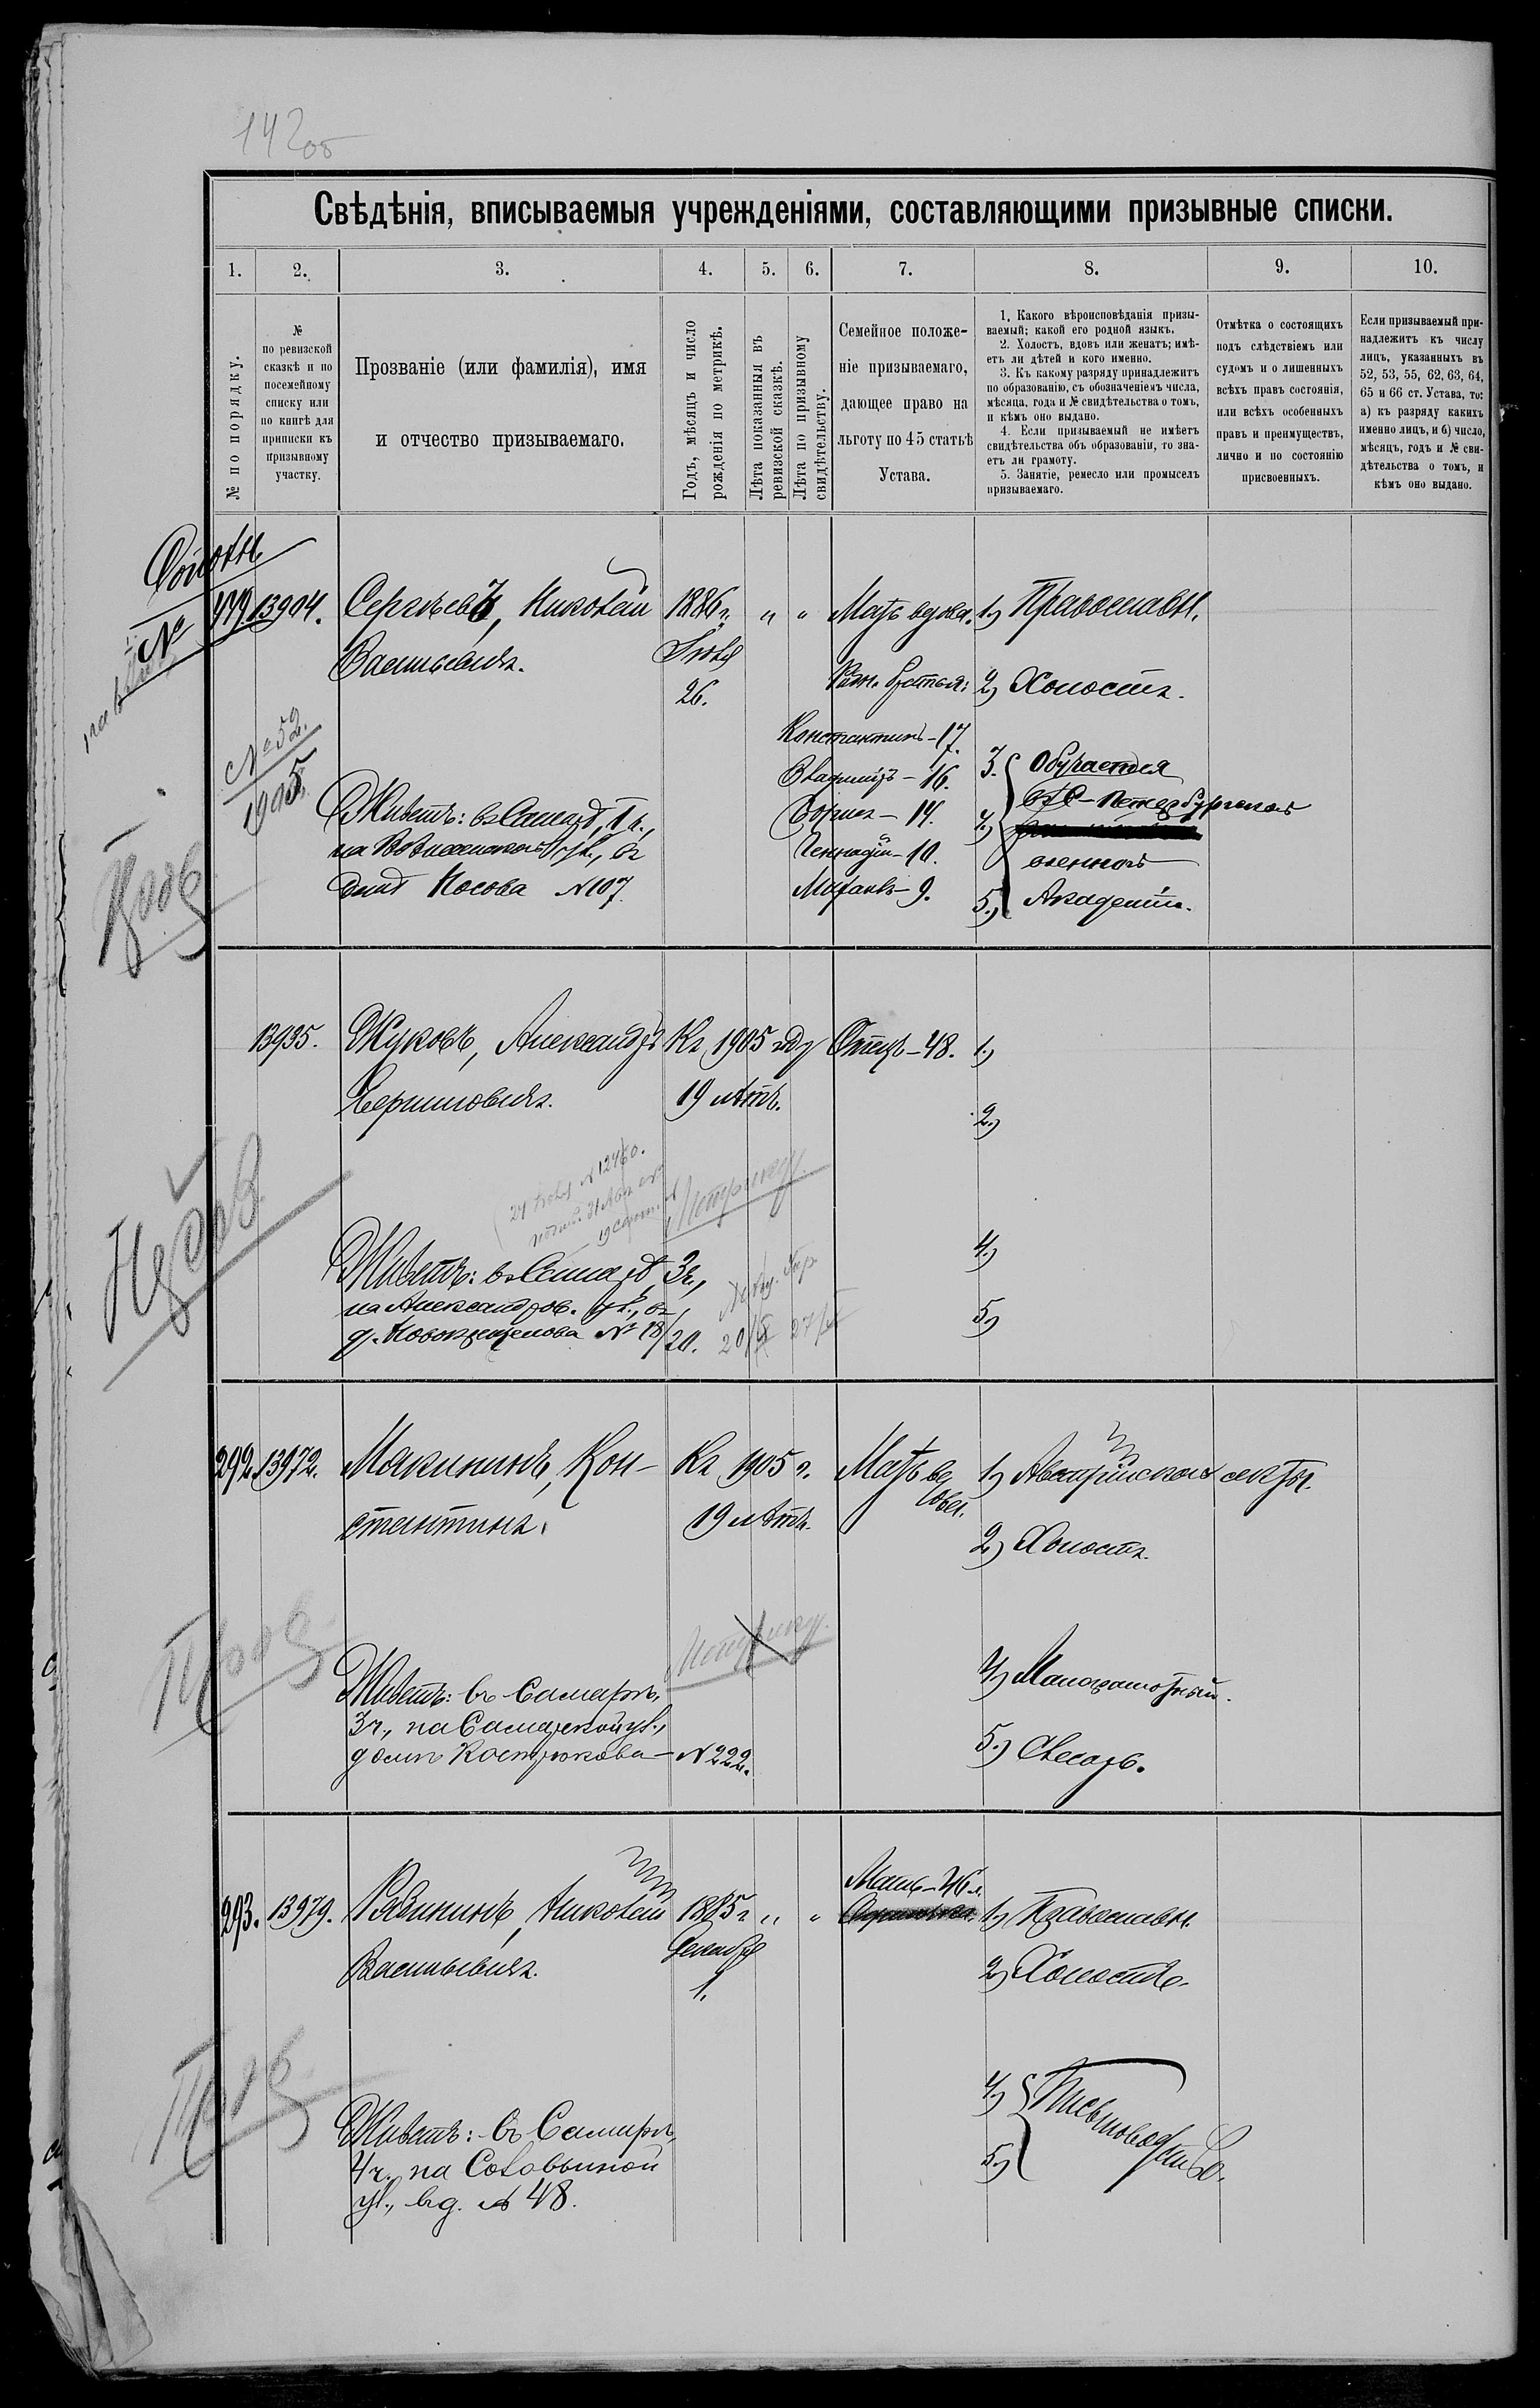 142об
Свѣдѣнія, вписываемыя учрежденіями, составляющими призывные списки.
1. 2. 3. 4. 5. 6. 7. 8. 9. 10.
№ по порядку.
№
по ревизской
сказкѣ и по
посемейному
списку или
по книгѣ для
приписки къ
призывному
участку.
Прозваніе (или фамилія), имя
и отчество призываемаго.
Годъ, мѣсяцъ и число
рожденія по метрикѣ.
Лѣта показанныя въ
ревизской сказкѣ.
Лѣта по призывному
свидѣтельству.
Семейное положе-
ніе призываемаго,
дающее право на
льготу по 45 статьѣ
Устава.
1. Какого вѣроисповѣданія призы-
ваемый; какой его родной языкъ.
2. Холостъ, вдовъ или женатъ; имѣ-
етъ ли дѣтей и кого именно.
3. Къ какому разряду принадлежитъ
по образованію, съ обозначеніемъ числа,
мѣсяца, года и № свидѣтельства о томъ,
и кѣмъ оно выдано.
4. Если призываемый не имѣетъ
свидѣтельства объ образованіи, то зна-
етъ ли грамоту.
5. Занятіе, ремесло или промыселъ
призываемаго.
Отмѣтка о состоящихъ
подъ слѣдствіемъ или
судомъ и о лишенныхъ
всѣхъ правъ состоянія,
или всѣхъ особенныхъ
правъ и преимуществъ,
лично и по состоянію
присвоенныхъ.
Если призываемый при-
надлежитъ къ числу
лицъ, указанныхъ въ
52, 53, 55, 62, 63, 64,
65 и 66 ст. Устава, то:
а) къ разряду какихъ
именно лицъ, и б) число,
мѣсяцъ, годъ и № сви-
дѣтельства о томъ, и
кѣмъ оно выдано.
№
479. 13904. Сергѣевъ, Николай
Васильевичъ.
1886 г.
Іюля
26.
" "
Мать вдова.
Род. братья:
Константинъ - 17.
Владиміръ - 16.
Борисъ - 14.
Геннадій - 10.
Михаилъ - 9.
1) Православн.
2) Холостъ.
3. Обучается
въ С-Петербургской
4.)
военной
5.) Академіи.
№ 52.
1905
Живетъ: въ Самарѣ, 1 ч.,
на Вознесенской ул., въ
домѣ Носова № 107.
13935. Жуковъ, Александръ
Къ 1905 году
19 лѣтъ.
Отецъ - 48.
1.)
2.)
4.)
5)
№ 12460.
Метрику.
Живетъ: въ Самарѣ, 3 ч.,
на Александров. ул., въ
д. Новокрещенова № 18/20.
292. 13972. Макининъ, Кон-
стантинъ.
Къ 1905 г.
19 лѣтъ.
Мать вдова.
1) Австрійской секты.
2) Холостъ.
4) Малограмотный.
5.) Слесарь.
Метрику.
Пров.
Живетъ: въ Самарѣ,
3 ч., на Самарской ул.,
домъ Кострюкова - № 222.
293. 13979. Рябининъ, Николай
Васильевичъ.
1885 г.
Декабря
1.
" "
Мать - 46 л.
1) Православн.
2) Холостъ.
4)
5) Письмоводство.
Пров.
Живетъ: въ Самарѣ,
4 ч., на Соловьиной
ул., въ д. № 48.